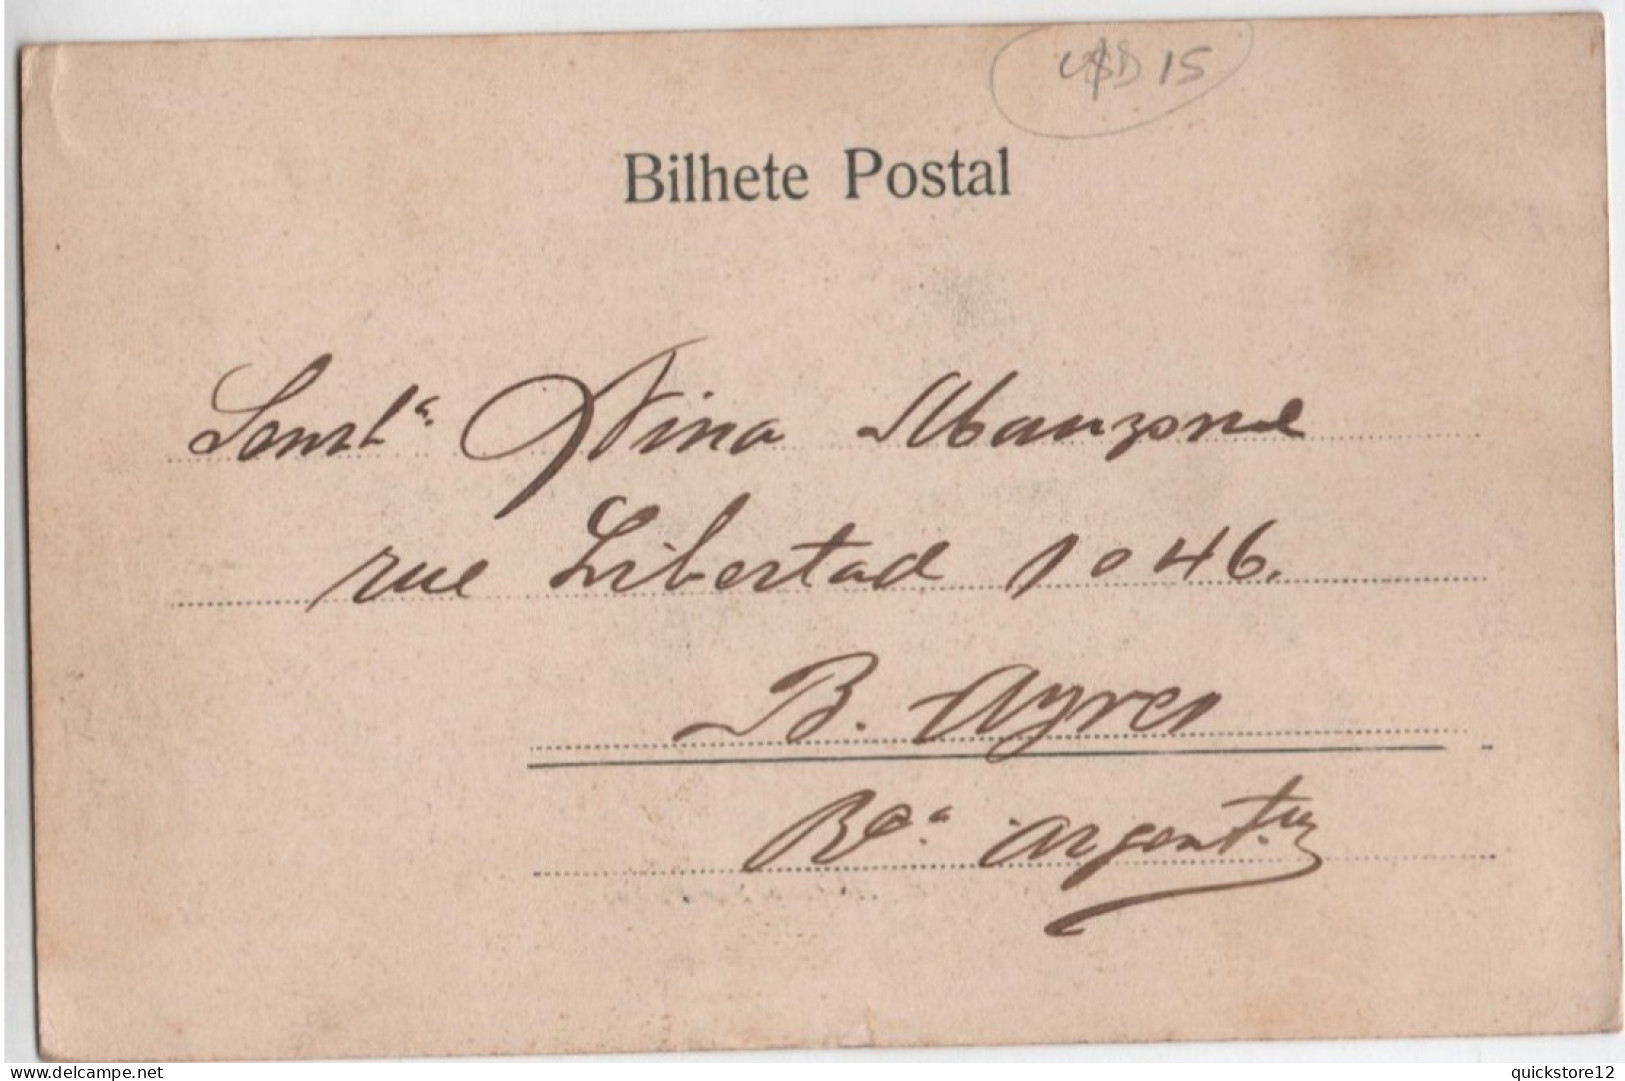 USD 15
Bilhete Postal
Senrta. Nina Manzone
rue Libertad 1046.
B. Ayres
Rca. Argent.na
delcampe.net
quickstore12